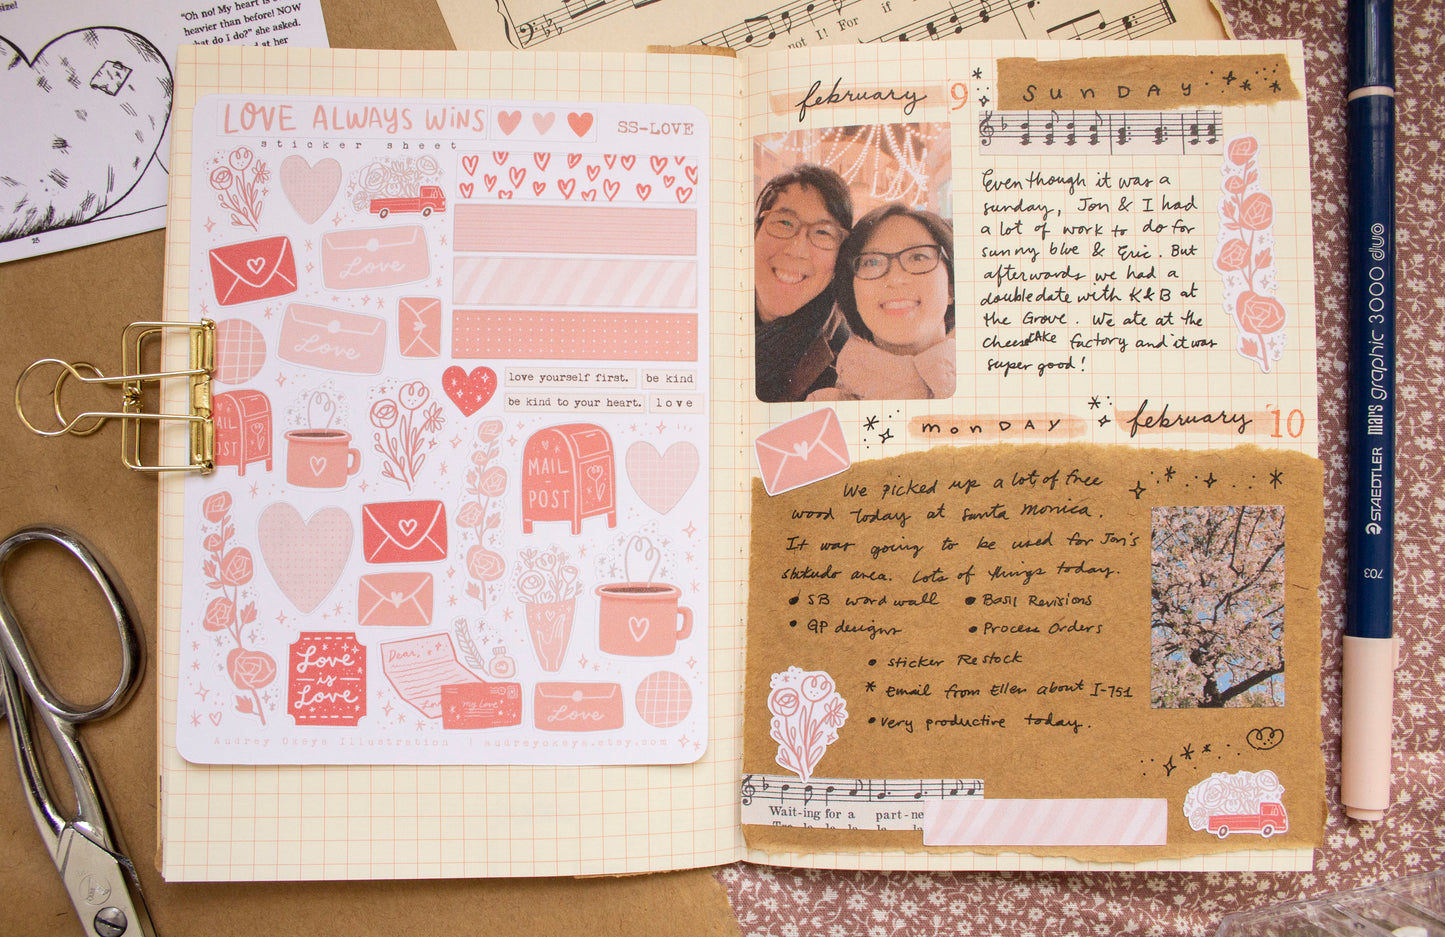 size!
"Oh no! My heart is e
heavier than before! NOW
what do I do?" she asked.
d at her
25
not I! For if
LOVE ALWAYS WiNS
SS-LOVE
sticker sheet
Love
Love
love yourself first.
be kind
be kind to your heart.
love
MAIL
POST
MAIL
POST
Love
is
Love
Dear,
Love
My Love
Love
Audrey Okeya Illustration | audreyokeya.etsy.com
february 9
SUNDAY
Even though it was a
sunday, Jon & I had
a lot of work to do for
sunny blue & Eric. But
afterwards we had a
double date with K&B at
the Grove. We ate at the
cheesecake factory and it was
super good!
MONDAY
february 10
We picked up a lot of free
wood today at Santa Monica.
It was going to be used for Jon's
area. Lots of things today.
• SB word wall
• Basil Revisions
• GP designs
• Process Orders
• Sticker Restock
* email from Ellen about I-751
• very productive today.
Wait-ing for a part-ne
Tra la la la la la
STAEDTLER mars graphic 3000 duo
703